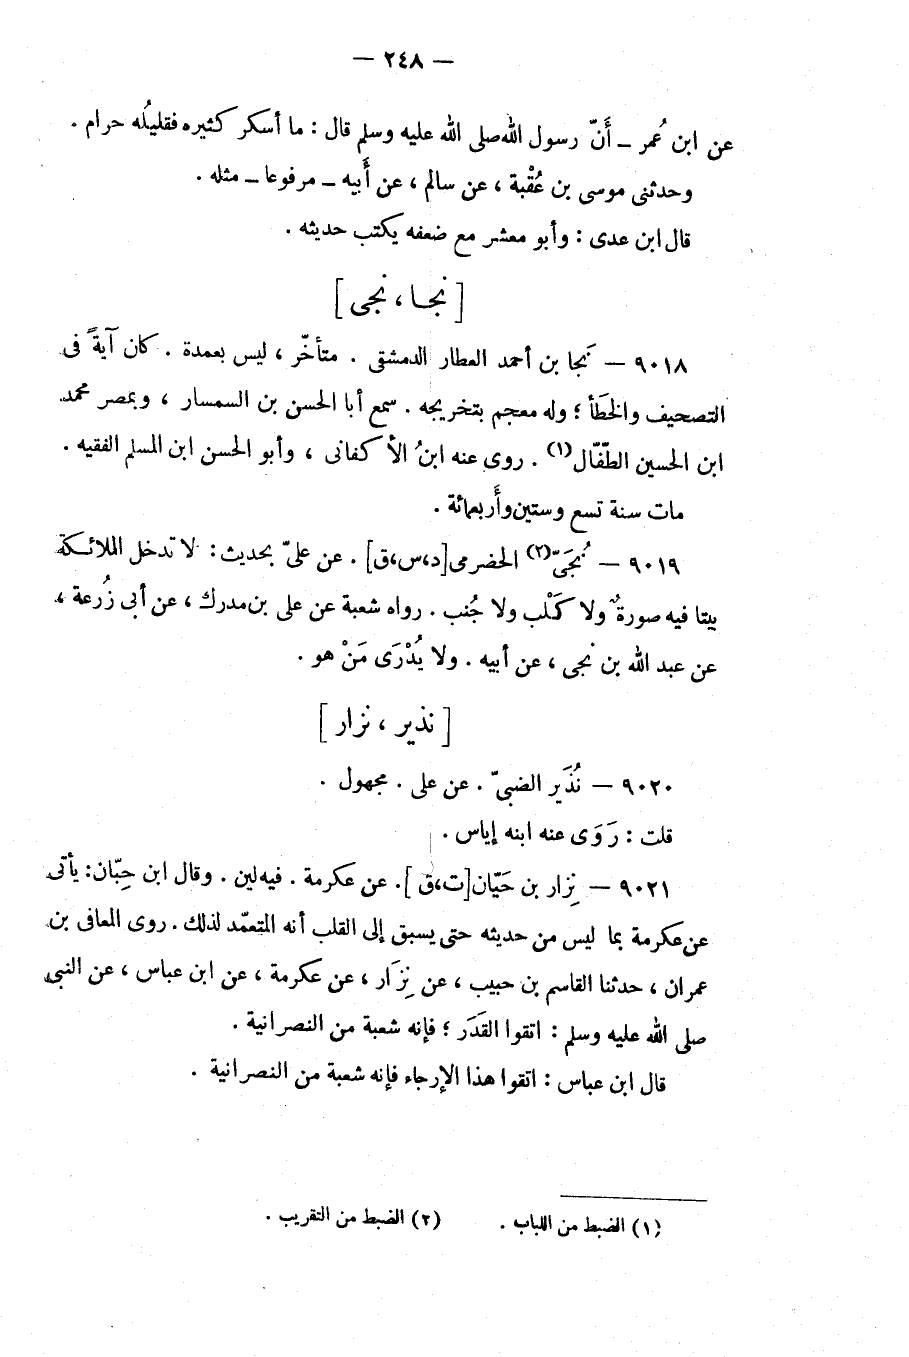 — ٢٤٨ —
عن ابن عُمر – أَنّ رسول الله صلى الله عليه وسلم قال : ما أسكر كثيره فقليلُه حرام .
وحدثنى موسى بن عُقْبة ، عن سالم ، عن أَبيه – مرفوعا – مثله .
قال ابن عدى : وأبو معشر مع ضعفه يكتب حديثه .
[ نجا ، نجى ]
٩٠١٨ — نَجا بن أحمد العطار الدمشقى . متأخّر ، ليس بعمدة . كان آيةً فى
التصحيف والخطَأ ؛ وله معجم بتخريجه . سمع أبا الحسن بن السمسار ، وبمصر محمد
ابن الحسين الطّفّال(١) . روى عنه ابنُ الأكفانى ، وأبو الحسن ابن المسلم الفقيه .
مات سنة تسع وستين وأَربعمائة .
٩٠١٩ — نُجَىّ(٢) الحضرمى [د،س،ق] . عن علىّ بحديث : لا تدخل الملائكة
بيتا فيه صورةٌ ولا كَلْب ولا جُنب . رواه شعبة عن على بن مدرك ، عن أبى زُرعة ،
عن عبد الله بن نجى ، عن أبيه . ولا يُدْرَى مَنْ هو .
[ نذير ، نزار ]
٩٠٢٠ — نُذَير الضبىّ . عن على . مجهول .
قلت : رَوَى عنه ابنه إياس .
٩٠٢١ — نِزار بن حَيّان [ت،ق] . عن عكرمة . فيه لين . وقال ابن حِبّان : يأتى
عن عكرمة بما ليس من حديثه حتى يسبق إلى القلب أنه المتعمّد لذلك . روى المعافى بن
عمران ، حدثنا القاسم بن حبيب ، عن نِزَار ، عن عكرمة ، عن ابن عباس ، عن النبى
صلى الله عليه وسلم : اتقوا القَدَر ؛ فإنه شعبة من النصرانية .
قال ابن عباس : اتقوا هذا الإرجاء فإنه شعبة من النصرانية .
(١) الضبط من اللباب . (٢) الضبط من التقريب .